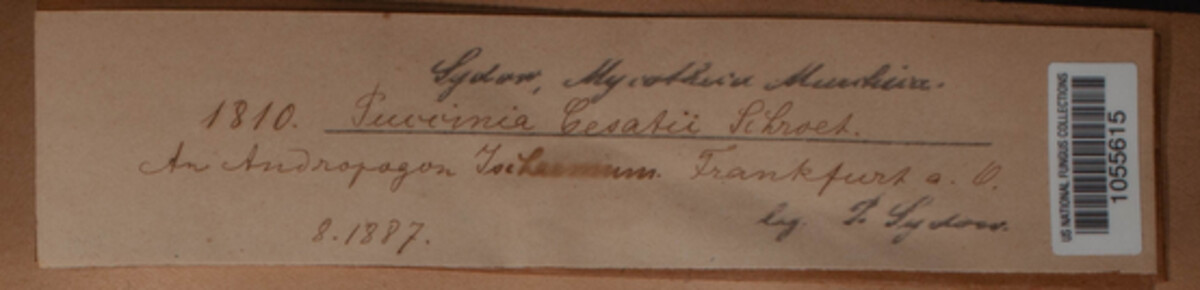 Sydow, Mycotheca Marchica.
1810. Puccinia Cesatii Schroet.
An Andropogon Ischaemum. Frankfurt a. O.
8.1887.
leg. P. Sydow.
US NATIONAL FUNGUS COLLECTIONS
1055615